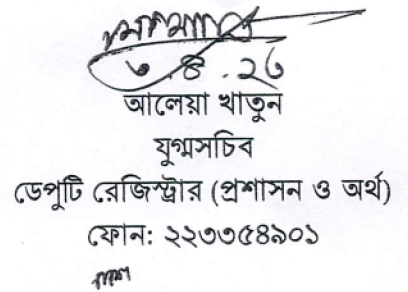 ৩.৪.২৬
আলেয়া খাতুন
যুগ্মসচিব
ডেপুটি রেজিস্ট্রার (প্রশাসন ও অর্থ)
ফোন: ২২৩৩৫৪৯০১